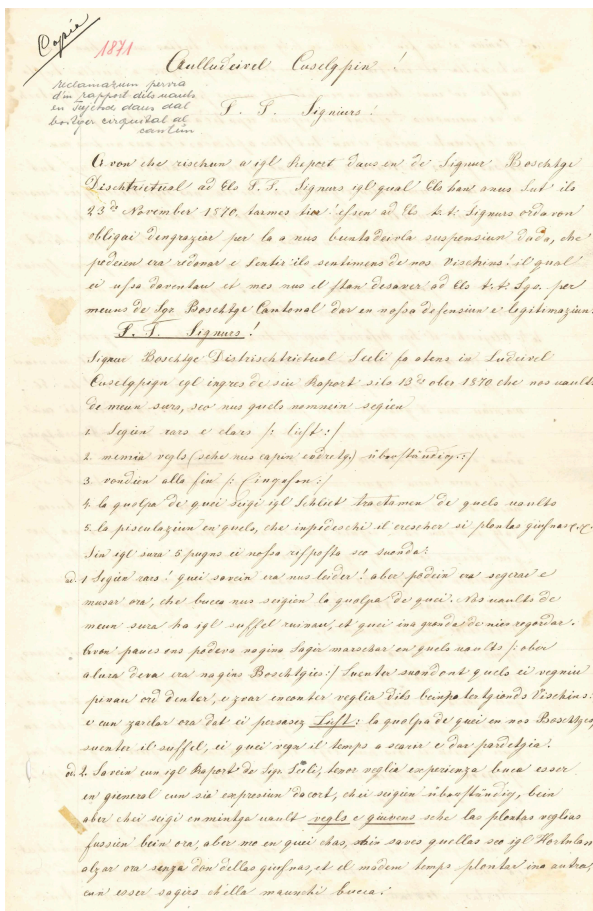 Copia
1871
reclamazun pervia
d'in rapport dils uauls
en Tujetsch daus dal
bostger cirquital al
cantun
Aulludeivel Cuselgpin!
T. T. Signiurs!
Avon che rischun a igl Report daus en de Signur Boschtge
Dischtrictual ad Els T. T. Signurs igl qual Els han anus
23 de November 1870, ad Els t. t. Signurs
obligai dengraziar per la a nus buntadeivla suspensiun dada, che
podeien era redonar e sentir ilo sentimens de nos Vischins! il qual
ei ussa daventau et mes nus el stan desaver ad Els t. t. Sgs. per
meuns de Sgr. Boschtge Cantonal dar en nossa defensiun e legitimaziun.
T. T. Signurs!
Signur Boschtge Distrischtrictual Seeli fa atens in Ludeivel
Cuselgpign egl ingres de siu Raport silo 13 d. ober 1870 che nos uauls
de meun surs, sco nus quels numnein seigien
1. Seigien rars e clars /: lieft :/
2. memia vegls (sche nus capin endretg) überständig :/
3. vondien alla fin /:
4. la quolpa de quei seigi igl Schliet tractamen de quels uauls
5. la pisculaziun en quels, che inpedeschi il crescher si plontas giufnas
Sin igl sura 5 pugns ei nossa rissposta sco suonda:
ad. 1 Seigien rars! quei savein era nus leider! aber podein era segirar e
mussar ora, che bucca nus seigien la quolpa de quei. Nos uauls de
meun sura ha igl suffel ruinau, et quei ina gronda de nies regordar.
Avon paucs ons podeva nagina Sagir marschar en quels uauls /: aber
alura deva era nagins Boschtgies :/ Suenter suondont quels ei vegniu
pinau ord denter, e zvar encunter veglia dils beinpatertgionds Vischins:
e cun zarclar ora dat ei persasez Lieft: la quolpa de quei en nos Boschtges,
suenter il suffel, ei quei vega il temps a scarer e dar pardetgia.
ad. 2. Savein cun igl Raport de Sgr. Seeli, tenor veglia experienza buca esser
en gieneral cun sia expresiun dacort, chei seigien überständig, bein
aber chei seigi enmintga uault vegls e giuvens sche las plontas veglias
fussien bein ora, aber mo en quei chas, saves quellas sco igl Hortulan
alzar ora senza don dellas giufnas, et el madem temps plontar ina autra,
cun esser sagirs ch'ella maunchi bucca!